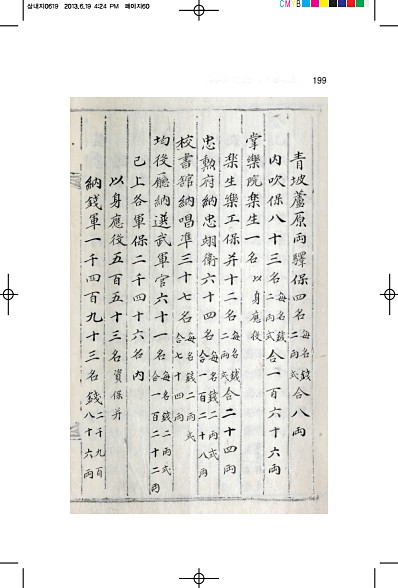 삼내지0619 2013.6.19 4:24 PM 페이지60
CMYB
199
青坡蘆原両驛保四名每名錢二両式合八両
内吹保八十三名每名錢二両式合一百六十六両
掌樂院樂生一名以身應役
樂生樂工保并十二名每名錢二両式合二十四両
忠勲府納忠翊衛六十四名每名錢二両式合一百二十八両
校書舘納唱準三十七名每名錢二両式合七十四両
均役廳納選武軍官六十一名每名錢二両式合一百二十二両
已上各軍保二千四十六名内
以身應役五百五十三名資保并
納錢軍一千四百九十三名錢二千九百八十六両